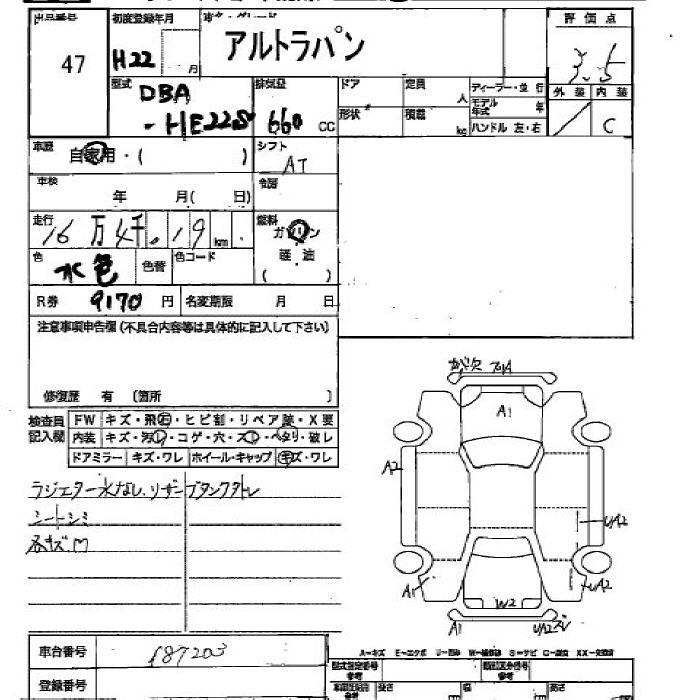 出品番号 初度登録年月 車名・グレード 評価点
47 H22 月 アルトラパン 3.5
型式 排気量 ドア 定員 人 ディーラー・並行 外装 内装
DBA モデル年式 年
-HE22S 660 cc 形状 積載 kg ハンドル 左・右 / C
車歴 自家用・( ) シフト AT
車検 年 月( 日) 冷房
走行 16万4千019km 燃料 ガソリン
色 水色 色替 色コード 軽油 ( )
R券 9170円 名変期限 月 日
注意事項申告欄(不具合内容等は具体的に記入して下さい)
修復歴 有 〔箇所 〕
検査員記入欄 FW キズ・飛石・ヒビ割・リペア跡・X要
内装 キズ・汚レ・コゲ・穴・スレ・ヘタリ・破レ
ドアミラー キズ・ワレ ホイール・キャップ キズ・ワレ
ラジエター水なし、リザーブタンクヌケレ
シートシミ
A1
A2
UA2
A1 UA2
W2
A1 UA2
A=キズ E=エクボ U=凹み W=補修跡 S=サビ C=腐食 XX=交換済
車台番号 187203
型式指定番号 参考 類別区分番号 参考
登録番号 長さ 幅 高さ